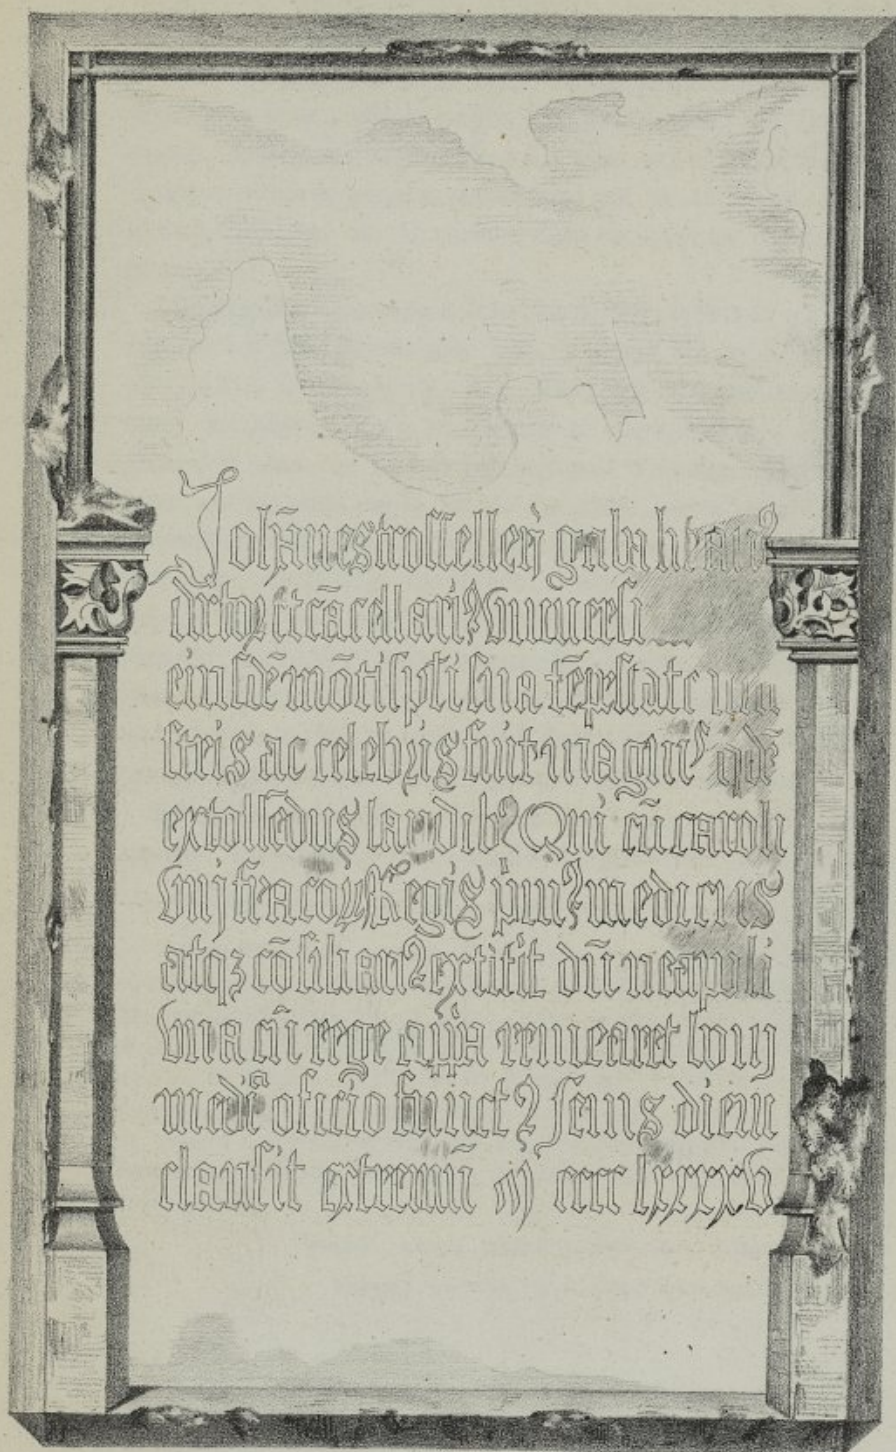 Joh̄anes trosselleri
dr̄toꝝ et cācellariꝰ vniuersi
eiusdē mōtispl̄i sua tēpestate
stris ac celebris fuit magnꝰ qdē
extollēdus laudibꝰ Qui cū caroli
viij frācoꝝ Regis pͥmꝰ medicus
atqꝫ cōsiliariꝰ extitit dū neapoli
vna cū rege remearet lviij
medͥ oficio functꝰ senis diem
clausit extremū m cccc lxxxxv